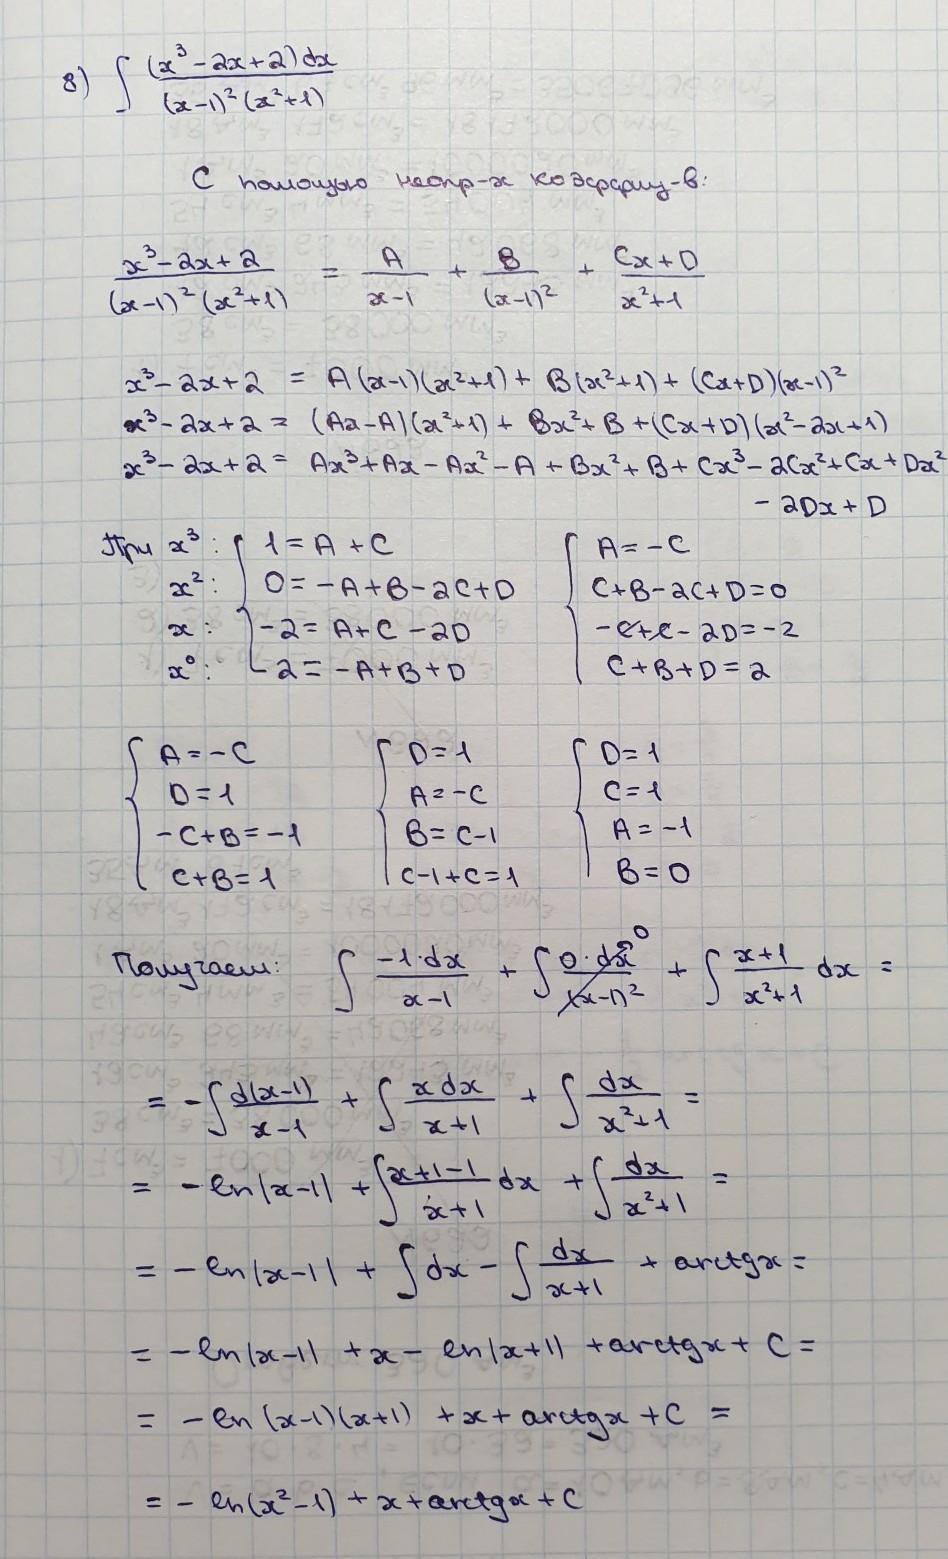 8) ∫ (x³ - 2x + 2) dx / (x-1)² (x²+1)
С помощью неопр-х коэффиц-в:
x³ - 2x + 2 / (x-1)² (x²+1) = A / x-1 + B / (x-1)² + Cx + D / x²+1
x³ - 2x + 2 = A(x-1)(x²+1) + B(x²+1) + (Cx+D)(x-1)²
x³ - 2x + 2 = (Ax - A)(x²+1) + Bx² + B + (Cx+D)(x² - 2x + 1)
x³ - 2x + 2 = Ax³ + Ax - Ax² - A + Bx² + B + Cx³ - 2Cx² + Cx + Dx²
- 2Dx + D
При x³: { 1 = A + C { A = -C
x²: 0 = -A + B - 2C + D C + B - 2C + D = 0
x: -2 = A + C - 2D -C + C - 2D = -2
x⁰: 2 = -A + B + D C + B + D = 2
{ A = -C { D = 1 { D = 1
D = 1 A = -C C = 1
-C + B = -1 B = C - 1 A = -1
C + B = 1 C - 1 + C = 1 B = 0
Получаем: ∫ -1·dx / x-1 + ∫ 0·dx / (x-1)² ⁰ + ∫ x+1 / x²+1 dx =
= -∫ d(x-1) / x-1 + ∫ x dx / x+1 + ∫ dx / x²+1 =
= -ln|x-1| + ∫ x+1-1 / x+1 dx + ∫ dx / x²+1 =
= -ln|x-1| + ∫ dx - ∫ dx / x+1 + arctgx =
= -ln|x-1| + x - ln|x+1| + arctgx + C =
= -ln (x-1)(x+1) + x + arctgx + C =
= -ln(x²-1) + x + arctgx + C